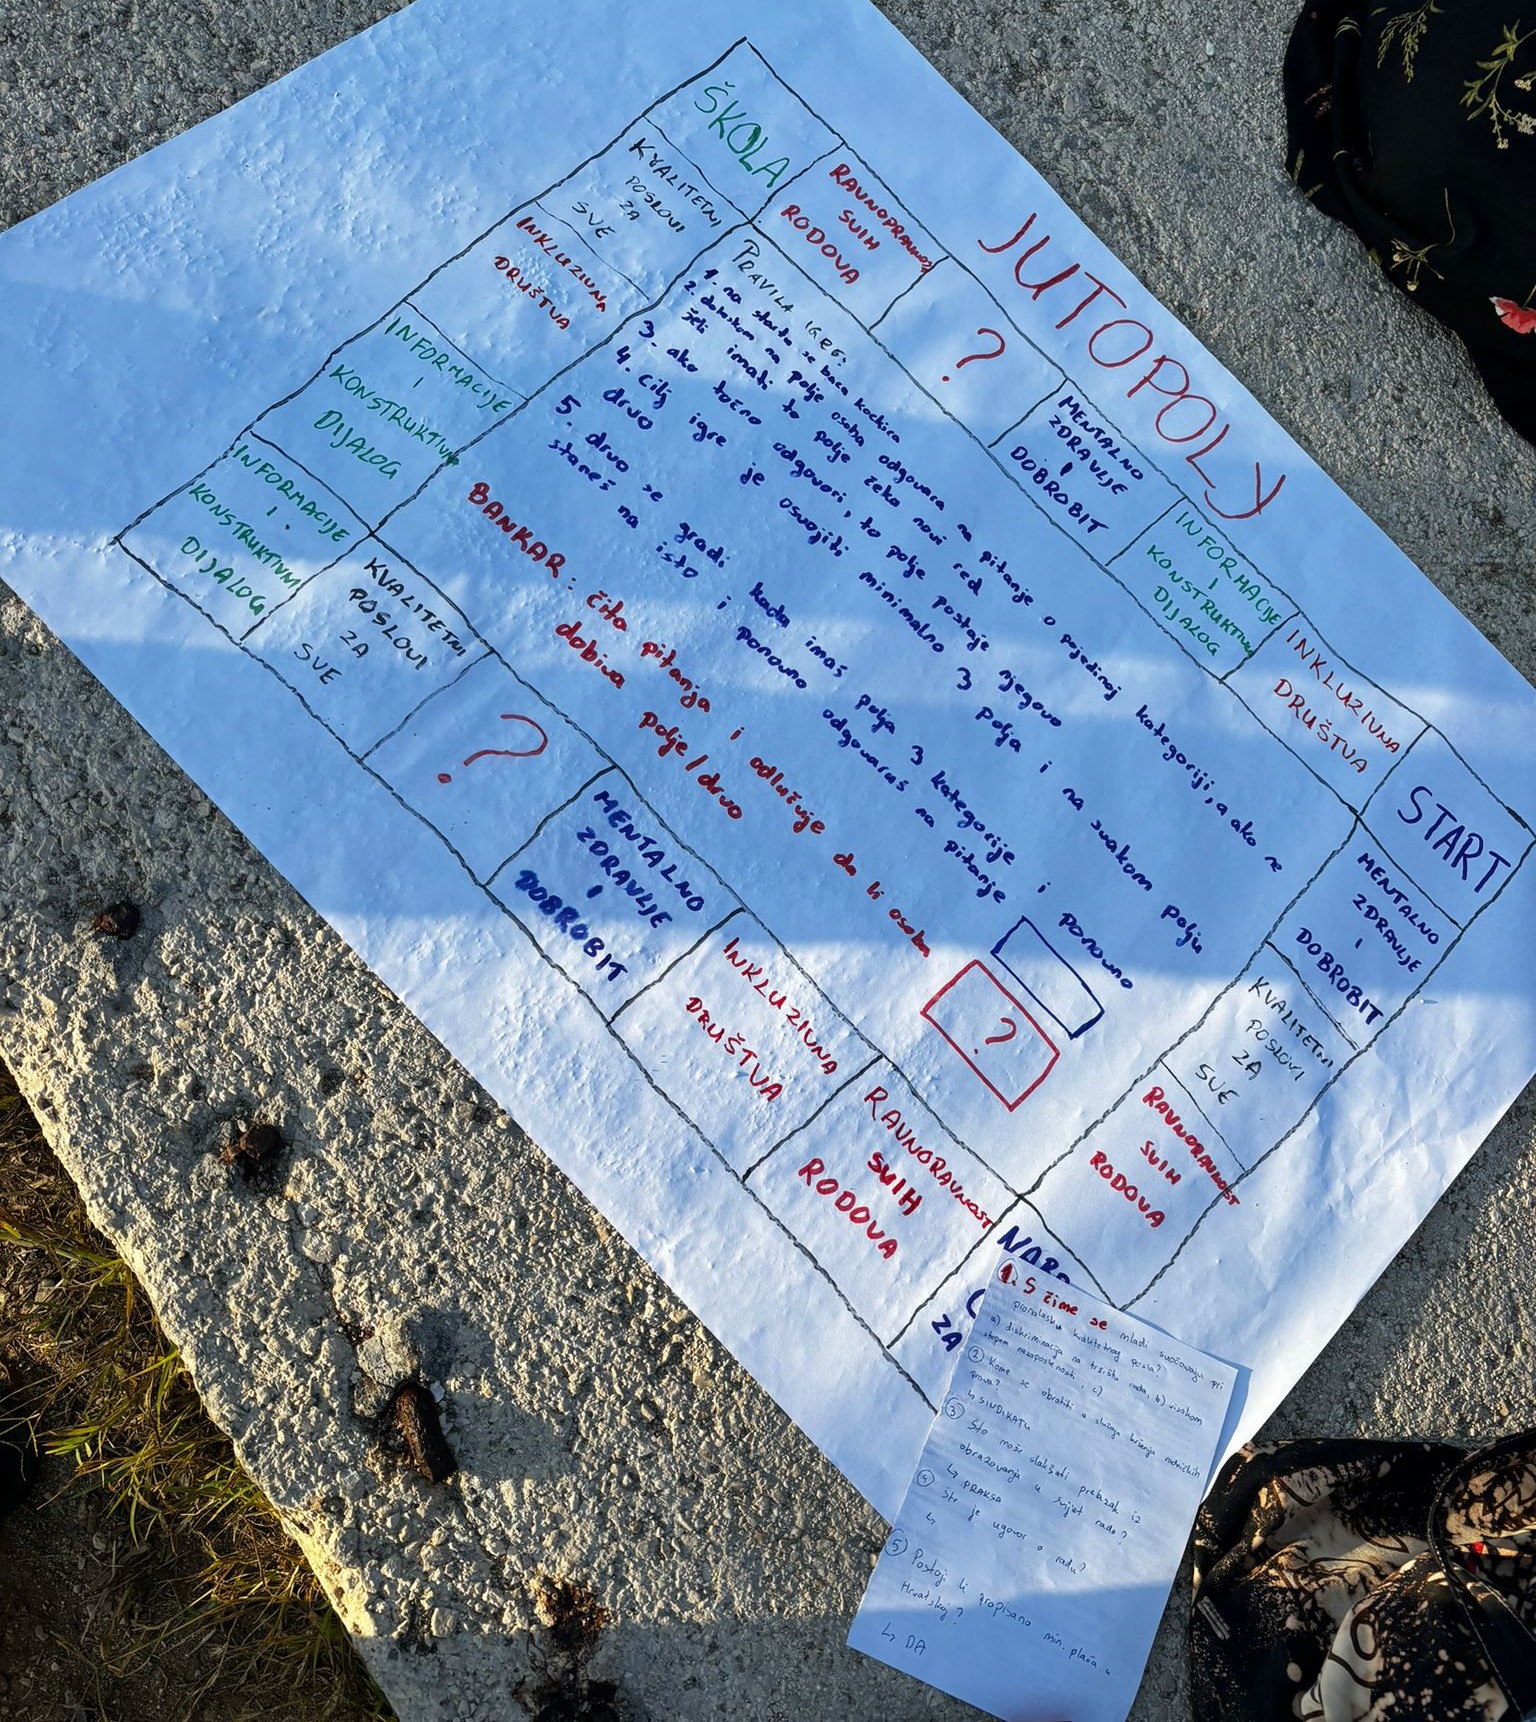 JUTOPOLY
ŠKOLA
RAVNOPRAVNOST
SVIH
RODOVA
?
MENTALNO
ZDRAVLJE
I
DOBROBIT
INFORMACIJE
I
KONSTRUKTIVNI
DIJALOG
INKLUZIVNA
DRUŠTVA
START
KVALITETNI
POSLOVI
ZA
SVE
INKLUZIVNA
DRUŠTVA
INFORMACIJE
I
KONSTRUKTIVNI
DIJALOG
INFORMACIJE
I
KONSTRUKTIVNI
DIJALOG
PRAVILA IGRE:
1. na startu se baca kockica
2. dolaskom na polje osoba odgovara na pitanje o pojedinoj kategoriji, a ako ne
želi imati to polje čeka novi red
3. ako točno odgovori, to polje postaje njegovo
4. cilj igre je osvojiti minimalno 3 polja i na svakom polju
drvo
5. drvo se gradi kada imaš polja 3 kategorije i ponovno
staneš na isto i ponovno odgovaraš na pitanje
BANKAR: čita pitanja i odlučuje da li osoba
dobiva polje/drvo
?
MENTALNO
ZDRAVLJE
I
DOBROBIT
KVALITETNI
POSLOVI
ZA
SVE
RAVNOPRAVNOST
SVIH
RODOVA
KVALITETNI
POSLOVI
ZA
SVE
?
MENTALNO
ZDRAVLJE
I
DOBROBIT
INKLUZIVNA
DRUŠTVA
RAVNOPRAVNOST
SVIH
RODOVA
ZA
1. S čime se mladi suočavaju pri
pronalasku kvalitetnog posla?
a) diskriminacija na tržištu rada, b) visokom
stopom nezaposlenosti, c)
2 Kome se obratiti u slučaju kršenja radničkih
prava?
↳ SINDIKATU
3 Što može olakšati prelazak iz
obrazovanja u svijet rada?
↳ PRAKSA
4 Što je ugovor o radu?
↳
5 Postoji li propisana min. plaća u
Hrvatskoj?
↳ DA